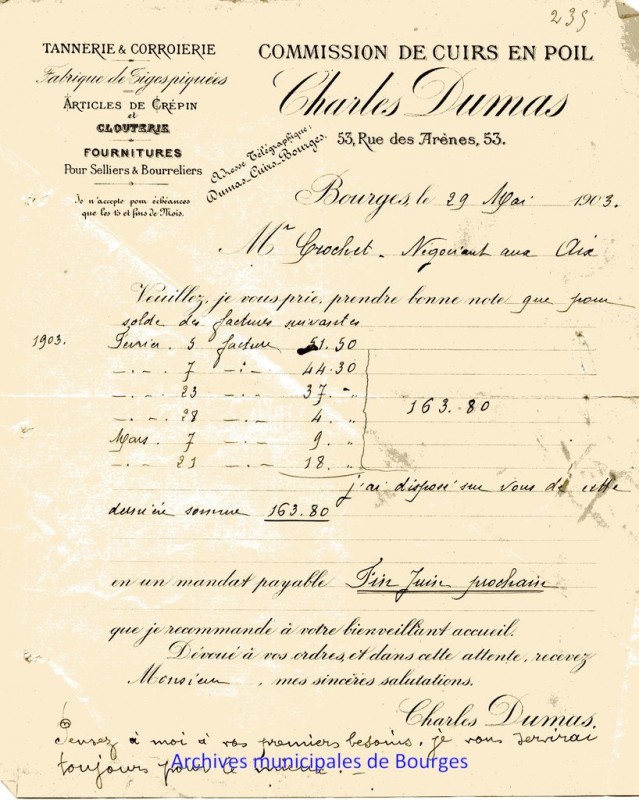 235
TANNERIE & CORROIERIE
Fabrique de Tiges piquées
ARTICLES DE CRÉPIN
et
CLOUTERIE
FOURNITURES
Pour Selliers & Bourreliers
Je n'accepte pour échéances
que les 15 et fins de Mois.
COMMISSION DE CUIRS EN POIL
Charles Dumas
53, Rue des Arènes, 53.
Adresse Télégraphique:
Dumas-Cuirs-Bourges.
Bourges, le 29 Mai 1903.
Mr Crochet - Négociant aux Aix
Veuillez, je vous prie, prendre bonne note que pour
solde des factures suivantes
1903. Février. 5 facture 51.50
-.- 7 -.- 44.30
-.- 23 -.- 37. "
-.- 28 -.- 4. "
163.80
Mars. 7 -.- 9. "
-.- 21 -.- 18. "
j'ai disposé sur vous de cette
dernière somme 163.80
en un mandat payable Fin Juin prochain
que je recommande à votre bienveillant accueil.
Dévoué à vos ordres, et dans cette attente, recevez
Monsieur, mes sincères salutations.
Charles Dumas.
Pensez à moi à vos premiers besoins, je vous servirai
toujours pour le mieux. -
Archives municipales de Bourges